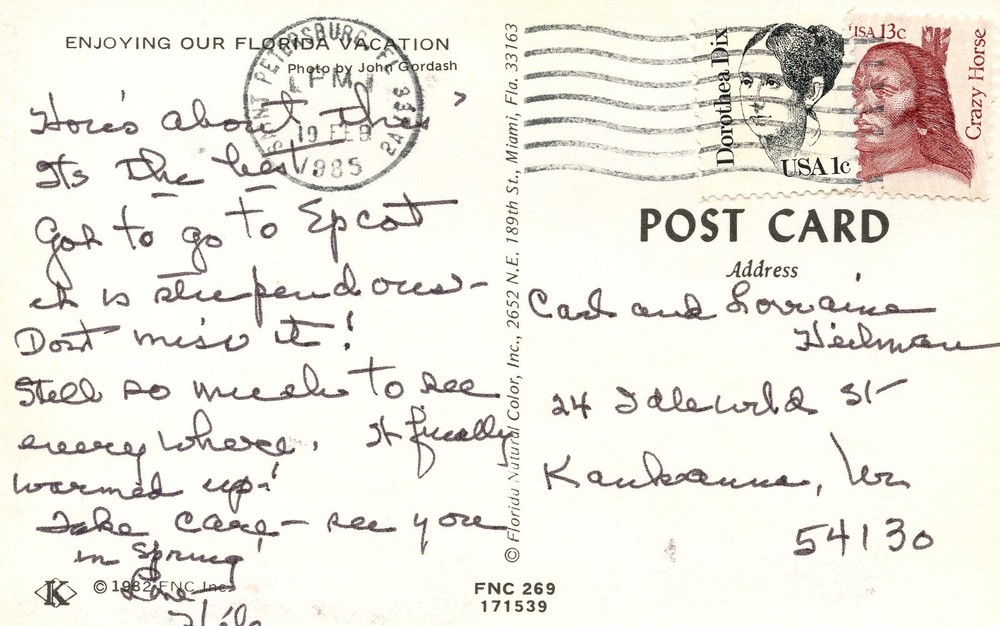 ENJOYING OUR FLORIDA VACATION
Photo by John Gordash
SAINT PETERSBURG, FL
PM
19 FEB
1985
How's about this?
Its the best
Got to go to Epcot
it is stupendous-
Dont miss it!
Still so much to see
every where. It finally
warmed up!
Take care - see you
in Spring!
Love
© 1982 FNC Inc.
K
© Florida Natural Color, Inc., 2652 N.E. 189th St., Miami, Fla. 33163
FNC 269
171539
Dorothea Dix
USA 1c
USA 13c
Crazy Horse
POST CARD
Address
Carl and Lorraine
Heilman
24 Idlewild St
Kaukauna, Wis
54130